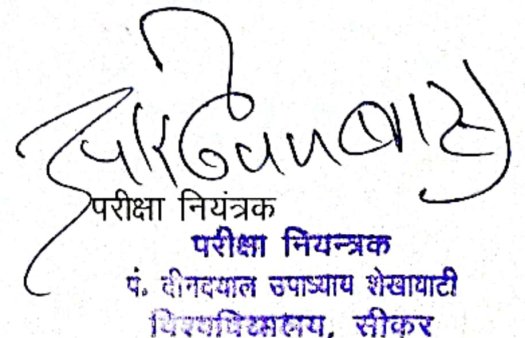 परीक्षा नियंत्रक
परीक्षा नियन्त्रक
पं. दीनदयाल उपाध्याय शेखावाटी
विश्वविद्यालय, सीकर